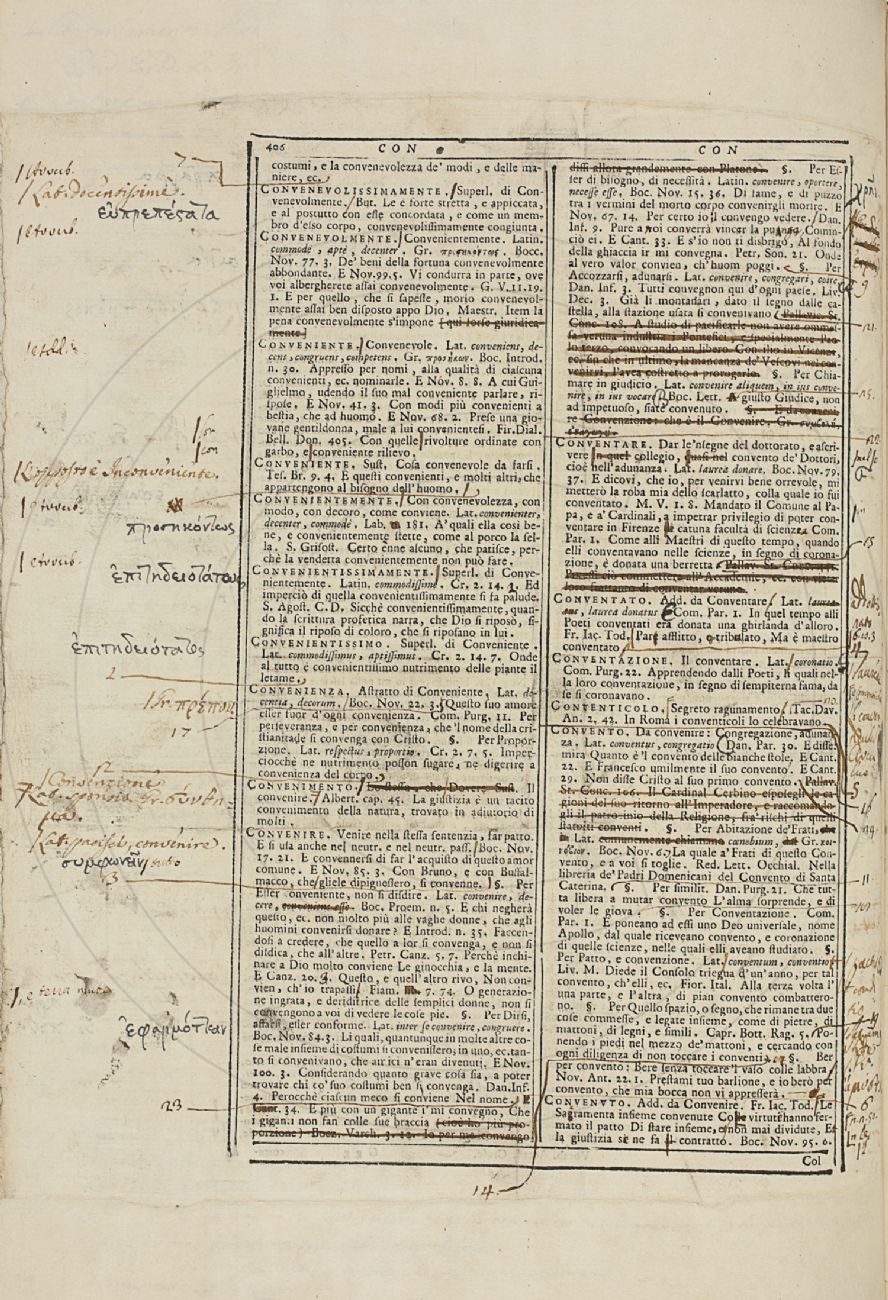 406 CON
costumi, e la convenevolezza de' modi, e delle ma-
niere, ec.
CONVENEVOLISSIMAMENTE. Superl. di Con-
venevolmente. But. Le è forte stretta, e appiccata,
e al postutto con esse concordata, e come un mem-
bro d'esso corpo, convenevolissimamente congiunta.
CONVENEVOLMENTE. Convenientemente. Latin.
commodè, aptè, decenter. Gr. Bocc.
Nov. 77. 3. De' beni della fortuna convenevolmente
abbondante. E Nov. 99. 5. Vi condurrà in parte, ove
voi albergherete assai convenevolmente. G. V. 11. 19.
1. E per quello, che si sapesse, morìo convenevol-
mente assai ben disposto appo Dio, Maestr. Item la
pena convenevolmente s'impone (qui forse giuridica-
mente)
CONVENIENTE. Convenevole. Lat. conveniens, de-
cens, congruens, competens. Gr. προσήκων. Boc. Introd.
n. 30. Appresso per nomi, alla qualità di ciascuna
convenienti, ec. nominarle. E Nov. 8. 8. A cui Gui-
glielmo, udendo il suo mal conveniente parlare, ri-
spose. E Nov. 41. 3. Con modi più convenienti a
bestia, che ad huomo. E Nov. 68. 2. Prese una gio-
vane gentildonna, male a lui convenientesi. Fir. Dial.
Bell. Don. 405. Con quelle rivolture ordinate con
garbo, e conveniente rilievo.
CONVENIENTE. Sust. Cosa convenevole da farsi.
Tes. Br. 9. 4. E questi convenienti, e molti altri, che
appartengono al bisogno dell'huomo.
CONVENIENTEMENTE. Con convenevolezza, con
modo, con decoro, come conviene. Lat. convenienter,
decenter, commodè. Lab. 181. A' quali ella così be-
ne, e convenientemente stette, come al porco la sel-
la. S. Grisost. Certo enne alcuno, che patisce, per-
chè la vendetta convenientemente non può fare.
CONVENIENTISSIMAMENTE. Superl. di Conve-
nientemente. Latin. commodissimè. Cr. 2. 14. 1. Ed
imperciò di quella convenientissimamente si fa palude.
S. Agost. C. D. Sicchè convenientissimamente, quan-
do la scrittura profetica narra, che Dio si riposò, si-
gnifica il riposo di coloro, che si riposano in lui.
CONVENIENTISSIMO. Superl. di Conveniente.
Lat. commodissimus, aptissimus. Cr. 2. 14. 7. Onde
al tutto è convenientissimo nutrimento delle piante il
letame.
CONVENIENZA. Astratto di Conveniente, Lat. de-
centia, decorum. Boc. Nov. 22. 3. Questo suo amore
esser fuor d'ogni convenienza. Com. Purg. 11. Per
perseveranza, e per convenienza, che 'l nome della cri-
stianitade si convenga con Cristo. §. Per Propor-
zione. Lat. respectus, proportio. Cr. 2. 7. 5. Imper-
ciocchè ne nutrimento posson sugare, ne digerire a
convenienza del corpo.
CONVENIMENTO. Lo stesso, che Dovere Sust. Il
convenire. Albert. cap. 45. La giustizia è un tacito
convenimento della natura, trovato in adiutorio di
molti.
CONVENIRE. Venire nella stessa sentenzia, far patto.
E si usa anche nel neutr. e nel neutr. pass. Boc. Nov.
17. 21. E convennersi di far l'acquisto di questo amor
comune. E Nov. 85. 3. Con Bruno, e con Buffal-
macco, che gliele dipignessero, si convenne. §. Per
Esser conveniente, non si disdire. Lat. convenire, de-
cere, Boc. Proem. n. 5. E chi negherà
questo, ec. non molto più alle vaghe donne, che agli
huomini convenirsi donare? E Introd. n. 35. Faccen-
dosi a credere, che quello a lor si convenga, e non si
disdica, che all'altre. Petr. Canz. 5. 7. Perchè inchi-
nare a Dio molto conviene Le ginocchia, e la mente.
E Canz. 20. Questo, e quell'altro rivo, Non con-
vien, ch'io trapassi. Fiam. 7. 74. O generazio-
ne ingrata, e deriditrice delle semplici donne, non si
convengono a voi di vedere le cose pie. §. Per Dirsi,
affarsi, esser conforme. Lat. inter se convenire, congruere.
Boc. Nov. 84. 3. Li quali, quantunque in molte altre co-
se male insieme di costumi si convenissero, in uno, ec. tan-
to si convenivano, che amici n'eran divenuti. E Nov.
100. 3. Considerando quanto grave cosa sia, a poter
trovare chi co' suo costumi ben si convenga. Dan. Inf.
4. Perocchè ciascun meco si conviene Nel nome. E
Cant. 34. E più con un gigante i' mi convegno, Che
i giganti non fan colle sue braccia (cioè ho più pro-
porzione) Boez. Varch. 3. 12. Io per me convengo
CON
dissi allora grandemente con Platone. §. Per Es-
ser di bisogno, di necessità. Latin. convenire, oportere,
necesse esse. Boc. Nov. 15. 36. Di fame, e di puzzo
tra i vermini del morto corpo convenirgli morire. E
Nov. 67. 14. Per certo io il convengo vedere. Dan.
Inf. 9. Pure a noi converrà vincer la pugna, Comin-
ciò ei. E Cant. 33. E s'io non ti disbrigo, Al fondo
della ghiaccia ir mi convegna. Petr. Son. 21. Onde
al vero valor convien, ch'huom poggi. §. Per
Accozzarsi, adunarsi. Lat. convenire, congregari, coire
Dan. Inf. 3. Tutti convegnon qui d'ogni paese. Liv.
Dec. 3. Già li montanari, dato il segno dalle ca-
stella, alla stazione usata si convenivano (Pallav. St.
Conc. 108. A studio di pacificarle non avere ommes-
sa veruna industria i Pontefici, e specialmente Pao-
lo terzo, convocando un libero Concilio in Vicenza,
ec. sin che in ultimo, la mancanza de' Vescovi nel con-
venirvi, l'avea costretto a prorogarlo. §. Per Chia-
mare in giudicio. Lat. convenire aliquem, in ius conve-
nire, in ius vocare. Boc. Lett. A giusto Giudice, non
ad impetuoso, siate convenuto.
CONVENTARE. Dar le 'nsegne del dottorato, e ascri-
vere in quel collegio, quasi nel convento de' Dottori,
cioè nell'adunanza. Lat. laureâ donare. Boc. Nov. 79.
37. E dicovi, che io, per venirvi bene orrevole, mi
metterò la roba mia dello scarlatto, colla quale io fui
conventato. M. V. 1. 8. Mandato il Comune al Pa-
pa, e a' Cardinali, a impetrar privilegio di poter con-
ventare in Firenze in catuna facultà di scienza. Com.
Par. 1. Come alli Maestri di questo tempo, quando
elli conventavano nelle scienze, in segno di corona-
zione, è donata una berretta
CONVENTATO. Add. da Conventare. Lat. laurea-
tus, laurea donatus. Com. Par. 1. In quel tempo alli
Poeti conventati era donata una ghirlanda d'alloro.
Fr. Iac. Tod. Pare afflitto, e tribulato, Ma è maestro
conventato
CONVENTAZIONE. Il conventare. Lat. coronatio.
Com. Purg. 22. Apprendendo dalli Poeti, li quali nel-
la loro conventazione, in segno di sempiterna fama, da
se si coronavano.
CONVENTICOLO. Segreto ragunamento. Tac. Dav.
An. 2. 42. In Roma i conventicoli lo celebravano.
CONVENTO. Da convenire: Congregazione, adunan-
za. Lat. conventus, congregatio. Dan. Par. 30. E disse
mira Quanto è 'l convento delle bianche stole. E Cant.
22. E Francesco umilmente il suo convento. E Cant.
29. Non disse Cristo al suo primo convento. Pallav.
St. Conc. 106. Il Cardinal Cerbino espose gli le ca-
gioni del suo ritorno all'Imperadore, e raccomando-
gli il patrocinio della Religione, fra' rischi di quelli
§. Per Abitazione de' Frati, che
in Lat. comunemente chiamano cœnobium,
Boc. Nov. 6. 7. La quale a' Frati di questo Con-
vento, e a voi si toglie. Red. Lett. Occhial. Nella
libreria de' Padri Domenicani del Convento di Santa
Caterina. §. Per similit. Dan. Purg. 21. Che tut-
ta libera a mutar convento L'alma sorprende, e di
voler le giova. §. Per Conventazione. Com.
Par. 1. E poneano ad essi uno Deo universale, nome
Apollo, dal quale riceveano convento, e coronazione
di quelle scienze, nelle quali elli aveano studiato. §.
Per Patto, e convenzione. Lat. conventum, conventio.
Liv. M. Diede il Consolo triegua d'un'anno, per tal
convento, ch'elli, ec. Fior. Ital. Alla terza volta l'
una parte, e l'altra, di pian convento combattero-
no. §. Per Quello spazio, o segno, che rimane tra due
cose commesse, e legate insieme, come di pietre, di
mattoni, di legni, e simili. Capr. Bott. Rag. 5. Po-
nendo i piedi nel mezzo de' mattoni, e cercando con
ogni diligenza di non toccare i conventi, ec. §. Ber
per convento: Bere senza toccare 'l vaso colle labbra.
Nov. Ant. 22. 1. Prestami tuo barlione, e io berò per
convento, che mia bocca non vi appresserà.
CONVENTO. Add. da Convenire. Fr. Iac. Tod. Le
Sagramenta insieme convenute Colle virtute hanno fer-
mato il patto Di stare insieme, e non mai dividute, E
la giustizia se ne fa il contratto. Boc. Nov. 95. 6.
Col
7
Lat. decentissimè.
εὐπρεπέστατα
Opposto è Inconveniente.
προσηκόντως
ἐπιτηδειοτάτως
ἐπιτηδειότατος
2
Gr. πρέπον
17
12
Convenzione
Lat. pacisci, convenire.
συμφωνεῖν
3
ἐφαρμόττειν
23
14
9
21.
15.
22
13
16
19
11
6